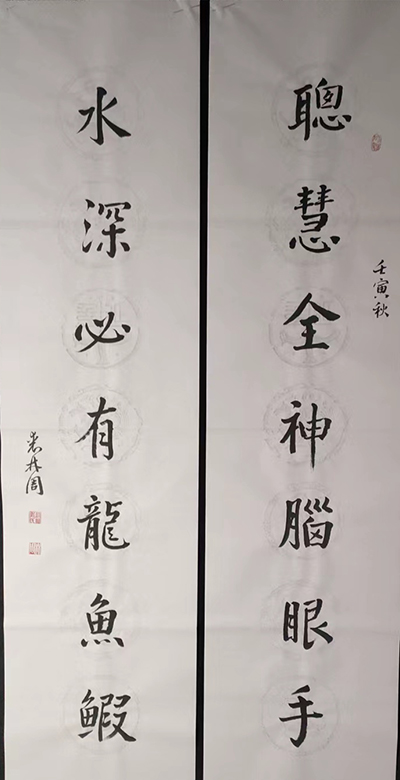 聰慧全神腦眼手
壬寅秋
水深必有龍魚鰕